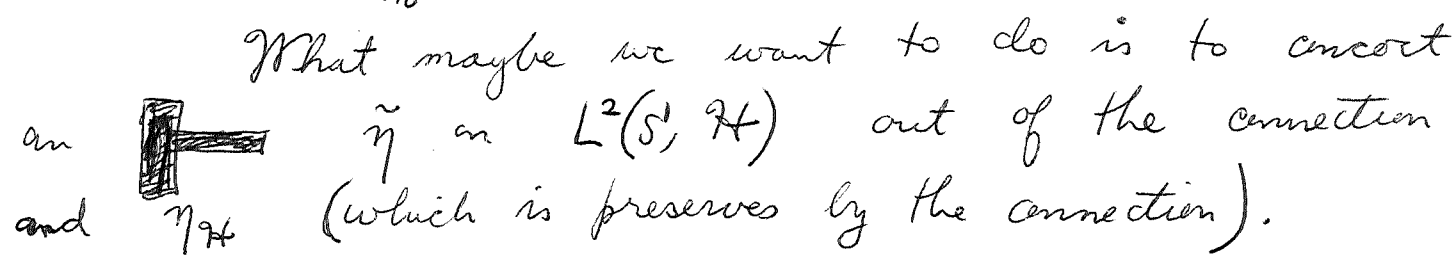 What maybe we want to do is to concoct
an η̃ on L²(S¹, ℋ) out of the connection
and η_ℋ (which is preserves by the connection).